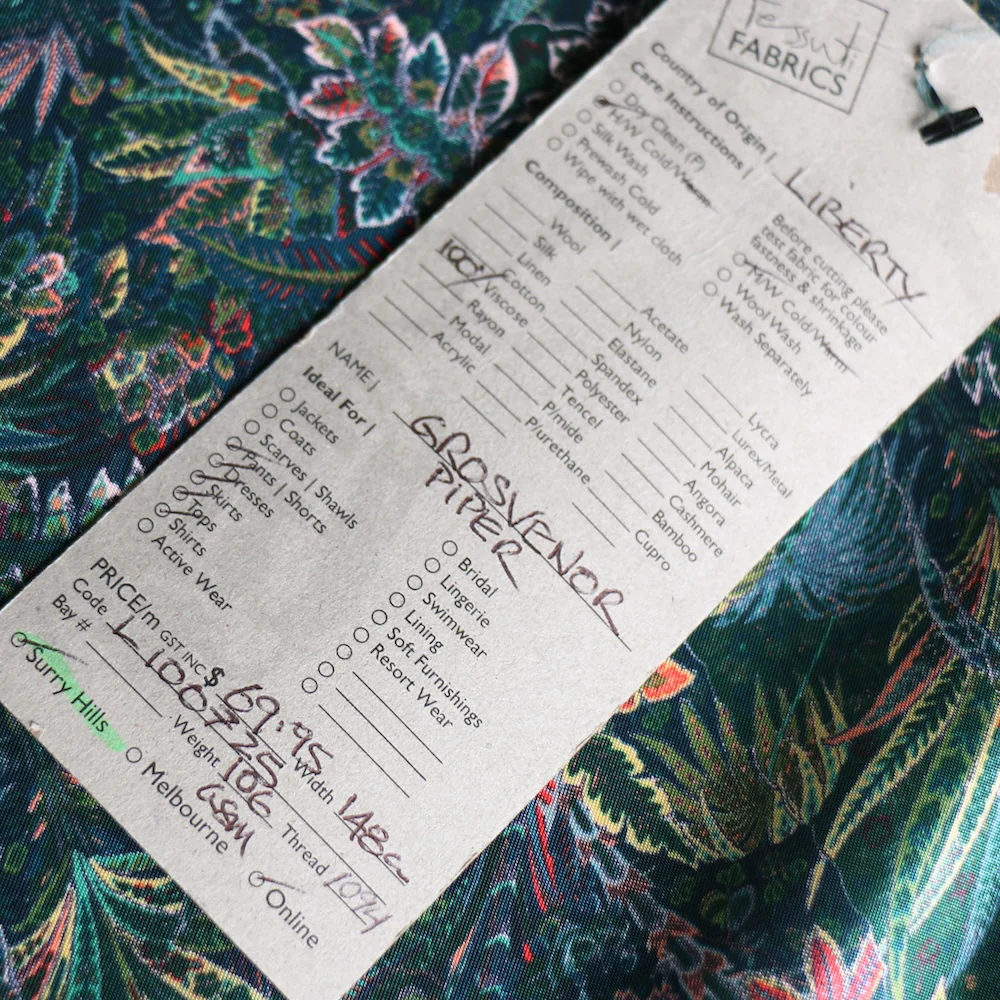 Tessuti
FABRICS
Country of Origin | LIBERTY
Care Instructions |
Dry Clean (P)
H/W Cold/Warm
Silk Wash
Prewash Cold
Wipe with wet cloth
Before cutting please
test fabric for colour
fastness & shrinkage
M/W Cold/Warm
Wool Wash
Wash Separately
Composition |
Wool
Silk
Linen
100% Cotton
Viscose
Rayon
Modal
Acrylic
Acetate
Nylon
Elastane
Spandex
Polyester
Tencel
P/mide
P/urethane
Lycra
Lurex/Metal
Alpaca
Mohair
Angora
Cashmere
Bamboo
Cupro
NAME | GROSVENOR
PIPER
Ideal For |
Jackets
Coats
Scarves | Shawls
Pants | Shorts
Dresses
Skirts
Tops
Shirts
Active Wear
Bridal
Lingerie
Swimwear
Lining
Soft Furnishings
Resort Wear
PRICE/m GST INC $ 69.95 Width 148c
Code L1007 25
Bay # Weight 106 Thread 1094
GSM
Surry Hills
Melbourne
Online